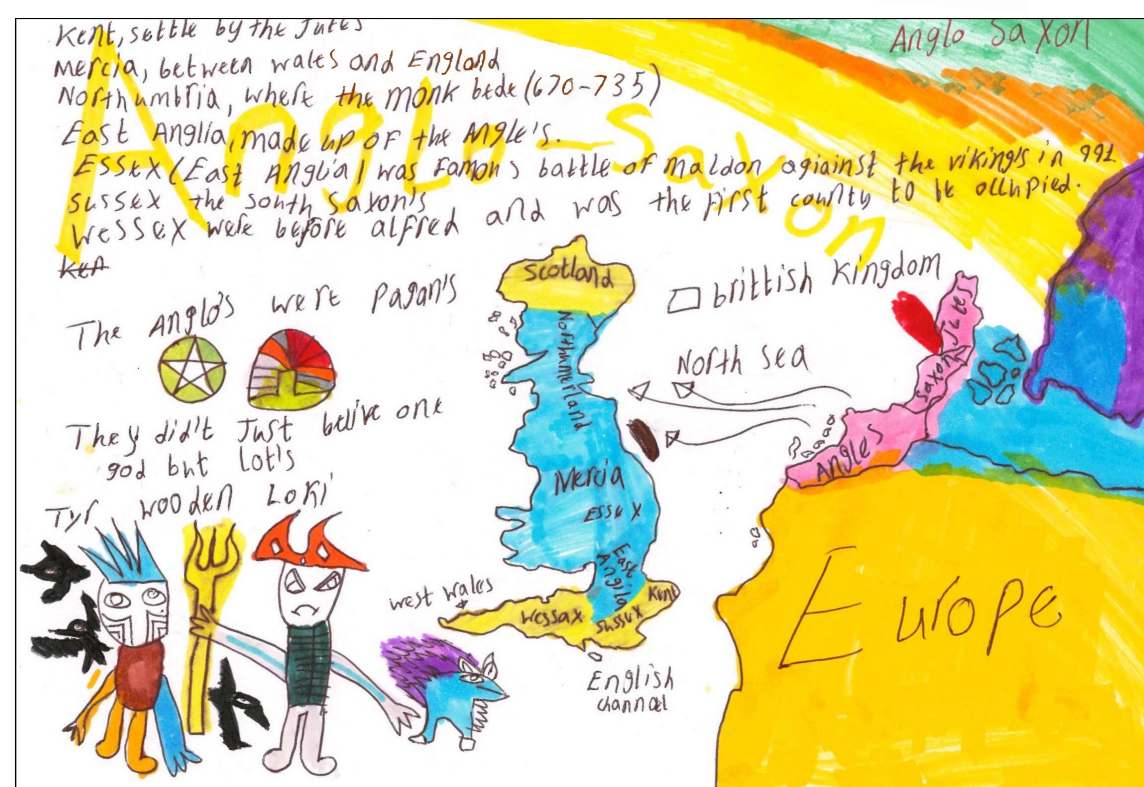 Kent, settle by the Jutes
Mercia, between wales and England
Northumbria, where the monk bede (670-735)
East Anglia, made up of the Angle's.
Essex (East Anglia) was famous battle of maldon agiainst the viking's in 991
sussex the south saxon's
Wessex were before alfred and was the first county to be occupied.
Ken
Anglo-Saxon
Anglo Saxon
The Anglo's were Pagan's
They did't Just belive one
god but Lot's
Tyr wooden Loki
Scotland
Northumerland
Mercia
Essex
East Anglia
Wessax
Sussex
Kent
west wales
English
channel
brittish Kingdom
North sea
Jute
Saxon
Angles
Europe